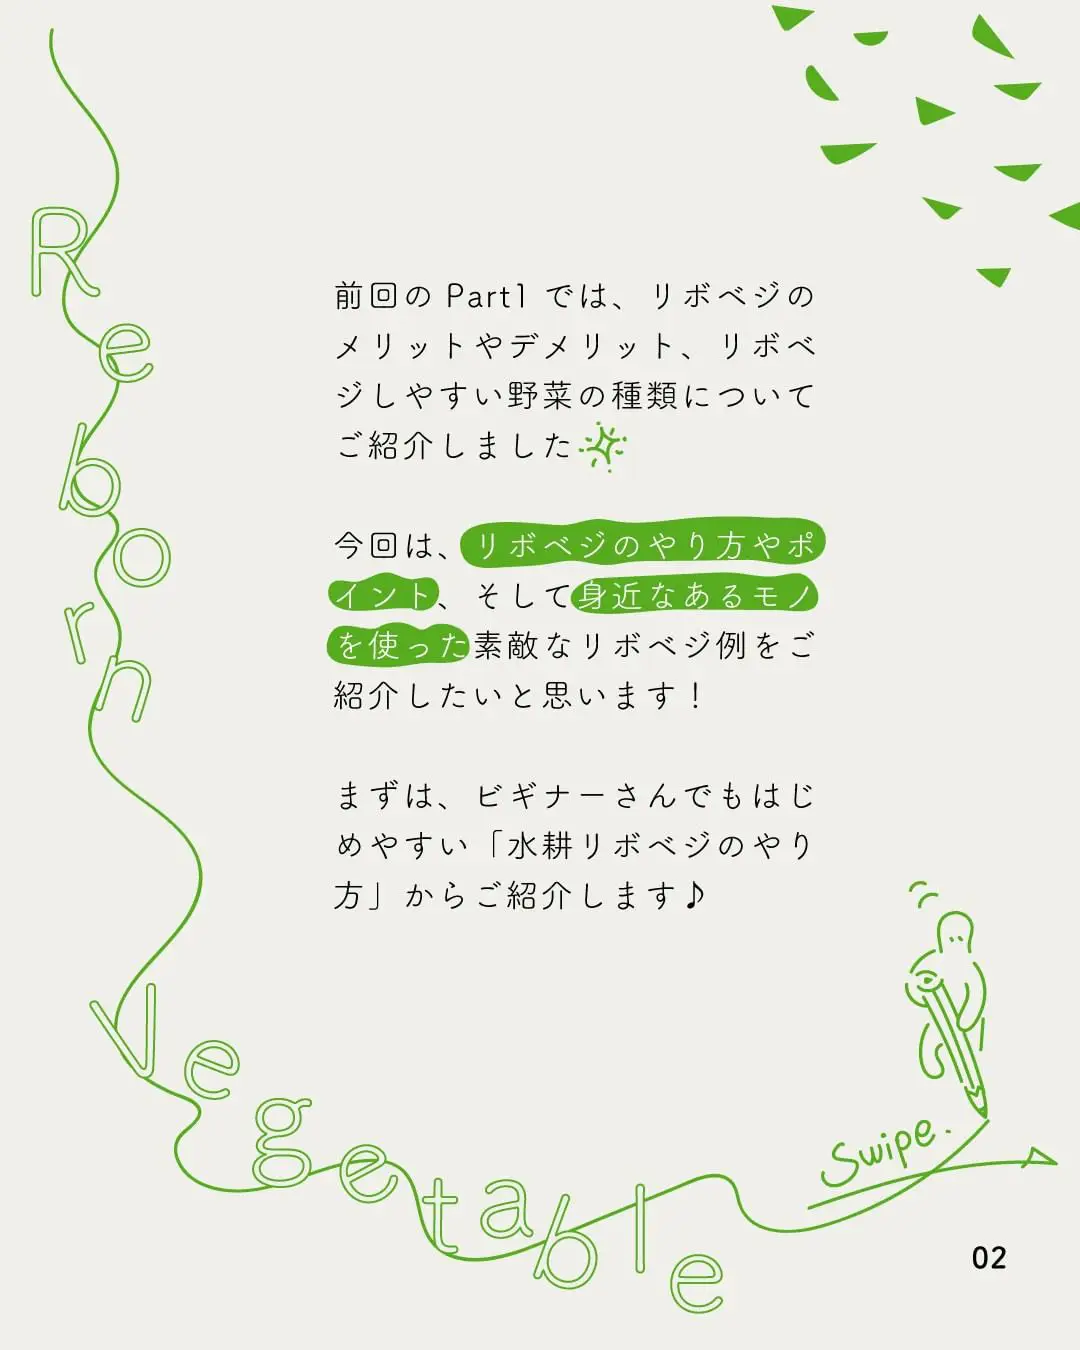 Reborn
Vegetable
前回の Part1 では、リボベジの
メリットやデメリット、リボベ
ジしやすい野菜の種類について
ご紹介しました
今回は、リボベジのやり方やポ
イント、そして身近なあるモノ
を使った素敵なリボベジ例をご
紹介したいと思います！
まずは、ビギナーさんでもはじ
めやすい「水耕リボベジのやり
方」からご紹介します♪
Swipe.
02